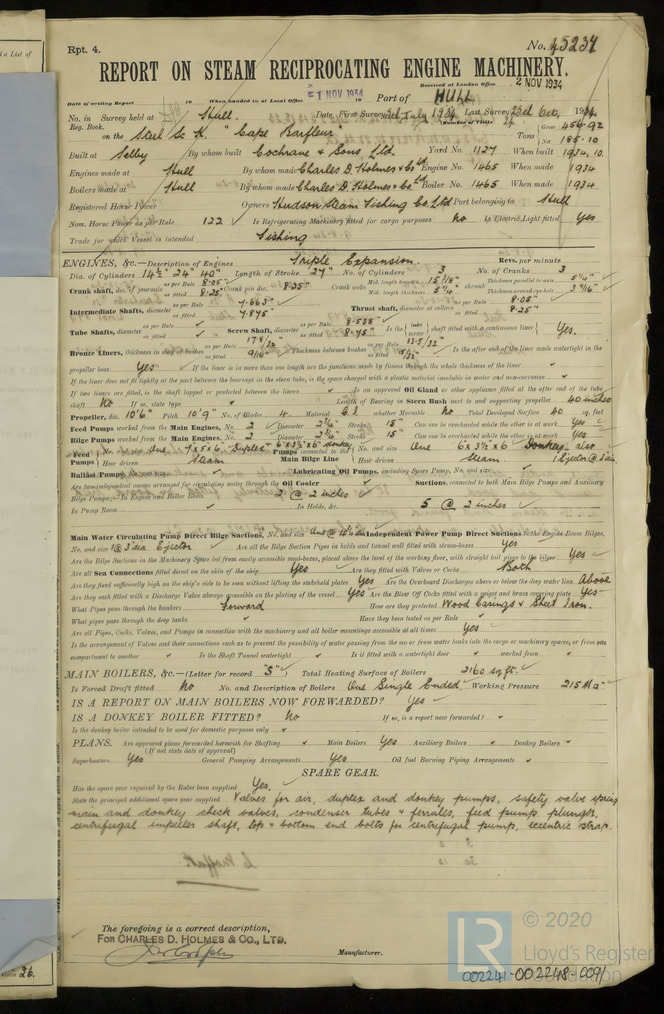 Rpt. 4.
No. 45237
REPORT ON STEAM RECIPROCATING ENGINE MACHINERY.
Received at London Office 2 NOV 1934
Date of writing Report 19 When handed in at Local Office 1 NOV 1934 Port of HULL
No. in Survey held at Hull. Date, First Survey July 1934 Last Survey 23rd Oct, 1934
Reg. Book. (Number of Visits
on the Steel Sc K. "Cape Barfleur" Tons Gross 456.92
Net 185.10
Built at Selby By whom built Cochrane & Sons Ltd. Yard No. 1127 When built 1934.10
Engines made at Hull By whom made Charles D. Holmes & Co Ltd Engine No. 1465 When made 1934
Boilers made at Hull By whom made Charles D. Holmes & Co Ltd Boiler No. 1465 When made 1934
Registered Horse Power Owners Hudson Steam Fishing Co. Ltd Port belonging to Hull
Nom. Horse Power as per Rule 122 Is Refrigerating Machinery fitted for cargo purposes No Is Electric Light fitted Yes
Trade for which Vessel is intended Fishing
ENGINES, &c.—Description of Engines Triple Expansion. Revs. per minute
Dia. of Cylinders 14½" 24" 40" Length of Stroke 27" No. of Cylinders 3 No. of Cranks 3
Crank shaft, dia. of journals as per Rule 8.05 as fitted 8.25" Crank pin dia. 8.25" Crank webs Mid. length breadth 15 7/8" Mid. length thickness 5 1/4" shrunk Thickness parallel to axis 5 1/4" Thickness around eye-hole 3 9/16"
Intermediate Shafts, diameter as per Rule 7.665" as fitted 7.875" Thrust shaft, diameter at collars as per Rule 8.05" as fitted 8.25"
Tube Shafts, diameter as per Rule as fitted Screw Shaft, diameter as per Rule 8.535" as fitted 8.75" Is the shaft fitted with a continuous liner Yes.
Bronze Liners, thickness in way of bushes as per Rule as fitted 9/16" Thickness between bushes as per Rule as fitted 15/32" Is the after end of the liner made watertight in the
propeller boss Yes If the liner is in more than one length are the junctions made by fusion through the whole thickness of the liner
If the liner does not fit tightly at the part between the bearings in the stern tube, is the space charged with a plastic material insoluble in water and non-corrosive
If two liners are fitted, is the shaft lapped or protected between the liners Is an approved Oil Gland or other appliance fitted at the after end of the tube
shaft No If so, state type Length of Bearing in Stern Bush next to and supporting propeller 40 inches
Propeller, dia. 10'6" Pitch 10'9" No. of Blades 4 Material C.I. whether Moveable No Total Developed Surface 40 sq. feet
Feed Pumps worked from the Main Engines, No. 2 Diameter 2 3/4" Stroke 15" Can one be overhauled while the other is at work Yes
Bilge Pumps worked from the Main Engines, No. 2 Diameter 2 3/4" Stroke 15" Can one be overhauled while the other is at work Yes
Feed Pumps No. and size One 7x5x6 Duplex 6x3½x6 donkey Pumps connected to the Main Bilge Line No. and size One 6x3½x6 Donkey also
How driven Steam How driven Steam 1 Ejector @ 3" dia
Ballast Pumps Lubricating Oil Pumps, including Spare Pump, No. and size
Are two independent means arranged for circulating water through the Oil Cooler Suctions, connected to both Main Bilge Pumps and Auxiliary
Bilge Pumps:—In Engine and Boiler Room 2 @ 2 inches
In Pump Room In Holds, &c. 5 @ 2 inches
Main Water Circulating Pump Direct Bilge Suctions, No. and size One @ dia Independent Power Pump Direct Suctions to the Engine Room Bilges,
No. and size 1 @ 3" dia Ejector Are all the Bilge Suction Pipes in holds and tunnel well fitted with strum-boxes Yes
Are the Bilge Suctions in the Machinery Space led from easily accessible mud-boxes, placed above the level of the working floor, with straight tail pipes to the bilges Yes
Are all Sea Connections fitted direct on the skin of the ship Yes Are they fitted with Valves or Cocks Both
Are they fixed sufficiently high on the ship's side to be seen without lifting the stokehold plates Yes Are the Overboard Discharges above or below the deep water line Above
Are they each fitted with a Discharge Valve always accessible on the plating of the vessel Yes Are the Blow Off Cocks fitted with a spigot and brass covering plate Yes
What Pipes pass through the bunkers Forward How are they protected Wood Casings & Sheet Iron.
What pipes pass through the deep tanks Have they been tested as per Rule
Are all Pipes, Cocks, Valves, and Pumps in connection with the machinery and all boiler mountings accessible at all times Yes
Is the arrangement of Valves and their connections such as to prevent the possibility of water passing from the sea or from water tanks into the cargo or machinery spaces, or from one
compartment to another Is the Shaft Tunnel watertight Is it fitted with a watertight door worked from
MAIN BOILERS, &c.—(Letter for record "S") Total Heating Surface of Boilers 2160 sq ft.
Is Forced Draft fitted No No. and Description of Boilers One Single Ended Working Pressure 215 lbs
IS A REPORT ON MAIN BOILERS NOW FORWARDED? Yes
IS A DONKEY BOILER FITTED? No If so, is a report now forwarded?
Is the donkey boiler intended to be used for domestic purposes only
PLANS. Are approved plans forwarded herewith for Shafting Main Boilers Yes Auxiliary Boilers Donkey Boilers
(If not state date of approval)
Superheaters Yes General Pumping Arrangements Yes Oil fuel Burning Piping Arrangements
SPARE GEAR.
Has the spare gear required by the Rules been supplied Yes.
State the principal additional spare gear supplied Valves for air, duplex and donkey pumps, safety valve spring
main and donkey check valves, condenser tubes & ferrules, feed pump plunger,
centrifugal impeller shaft, top & bottom end bolts for centrifugal pump, eccentric strap.
The foregoing is a correct description,
FOR CHARLES D. HOLMES & CO., LTD.
Manufacturer.
LR © 2020
Lloyd's Register
Foundation
002241-002248-0091